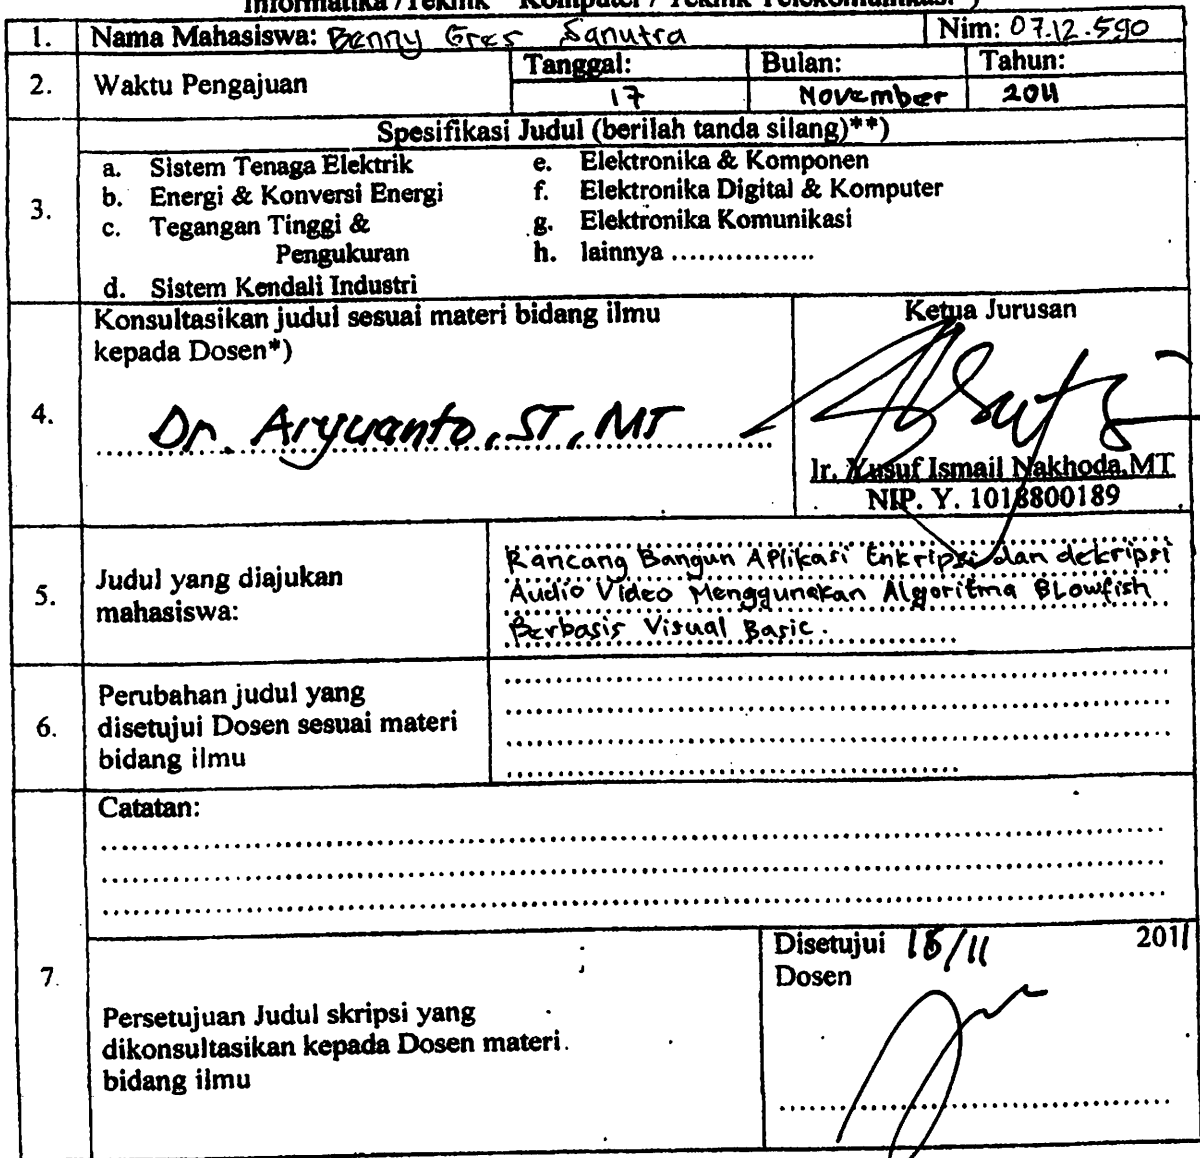 Informatika /Teknik Komputer / Teknik Telekomunikasi *)
1. Nama Mahasiswa: Benny Gres Sanutra Nim: 07.12.590
2. Waktu Pengajuan
Tanggal: Bulan: Tahun:
17 November 2011
3. Spesifikasi Judul (berilah tanda silang)**)
a. Sistem Tenaga Elektrik
b. Energi & Konversi Energi
c. Tegangan Tinggi &
Pengukuran
d. Sistem Kendali Industri
e. Elektronika & Komponen
f. Elektronika Digital & Komputer
g. Elektronika Komunikasi
h. lainnya ................
4. Konsultasikan judul sesuai materi bidang ilmu
kepada Dosen*)
Dr. Aryuanto, ST, MT
Ketua Jurusan
Ir. Yusuf Ismail Nakhoda,MT
NIP. Y. 1018800189
5. Judul yang diajukan
mahasiswa:
Rancang Bangun Aplikasi Enkripsi dan dekripsi
Audio Video Menggunakan Algoritma Blowfish
Berbasis Visual Basic.
6. Perubahan judul yang
disetujui Dosen sesuai materi
bidang ilmu
7. Catatan:
Persetujuan Judul skripsi yang
dikonsultasikan kepada Dosen materi
bidang ilmu
Disetujui 18/11 2011
Dosen